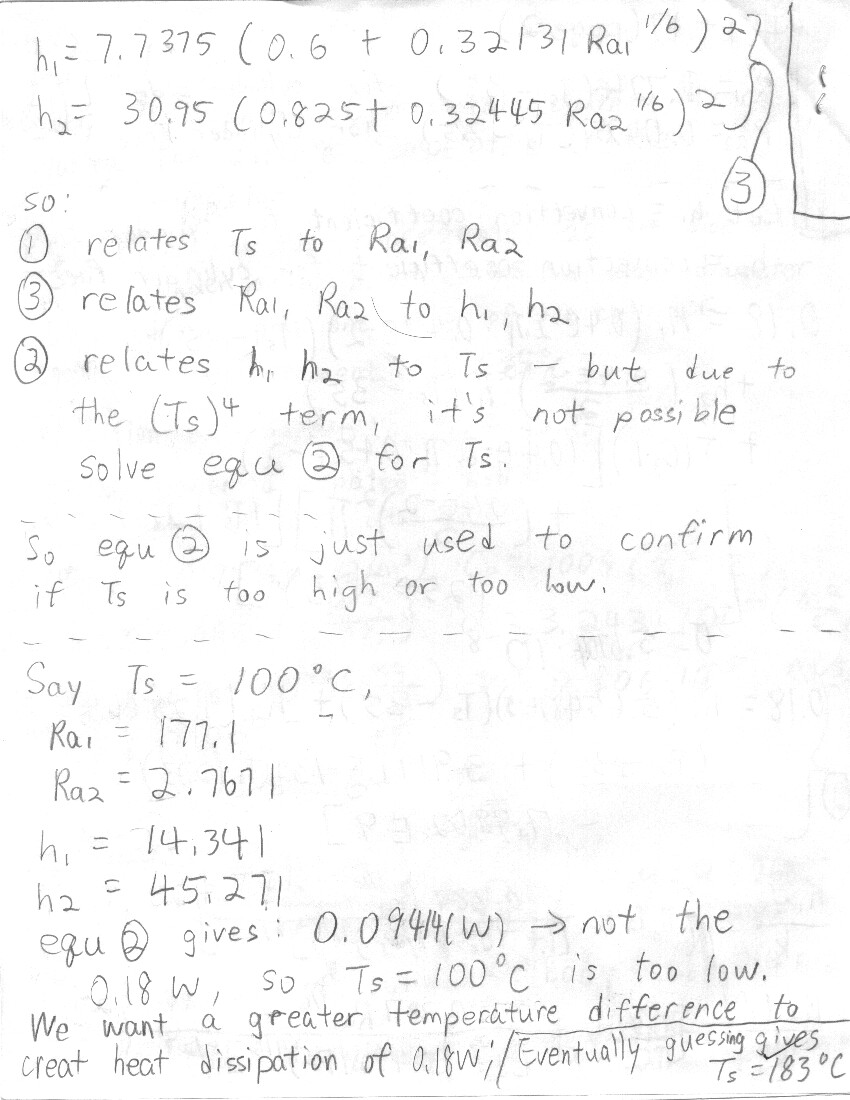 h₁ = 7.7375 (0.6 + 0.32131 Ra₁ ^1/6)²
h₂ = 30.95 (0.825 + 0.32445 Ra₂ ^1/6)²
③
so:
① relates Ts to Ra₁, Ra₂
③ relates Ra₁, Ra₂ to h₁, h₂
② relates h₁ h₂ to Ts – but due to
the (Ts)⁴ term, it's not possible
solve equ ② for Ts.
So equ ② is just used to confirm
if Ts is too high or too low.
Say Ts = 100°C,
Ra₁ = 177.1
Ra₂ = 2.7671
h₁ = 14.341
h₂ = 45.271
equ ② gives: 0.09414(W) → not the
0.18 W, so Ts = 100°C is too low.
We want a greater temperature difference to
creat heat dissipation of 0.18W; Eventually guessing gives
Ts = 183°C